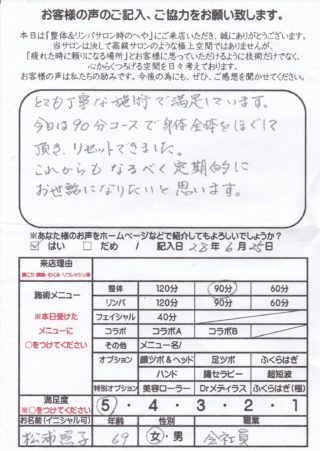 お客様の声のご記入、ご協力をお願い致します。
本日は『整体&リンパサロン時のへや』にご来店いただき、誠にありがとうございます。
当サロンは決して高級サロンのような極上空間ではありませんが、
『疲れた時に頼りになる場所』とお客様に思っていただけるように技術だけでなく、
心からくつろげる空間を日々考えております。
お客様の声は私たちの励みです。今後の為にも、ぜひ、ご感想を聞かせてください。
とても丁寧な施術で満足しています。
今日は90分コースで身体全体をほぐして
頂き、リセットできました。
これからもなるべく定期的に
お世話になりたいと思います。
※あなた様のお声をホームページなどで紹介してもよろしいでしょうか?
☑ はい □ だめ / 記入日 28年6月25日
来店理由
肩こり・腰痛・むくみ・リフレッシュ等
施術メニュー
※本日受けた
メニューに
○をつけてください
整体 120分 90分 60分
リンパ 120分 90分 60分
フェイシャル 40分
コラボ コラボA コラボB
その他 メニュー名/
オプション 顔ツボ&ヘッド 足ツボ ふくらはぎ
ハンド 腸セラピー 超短波
特別オプション 美容ローラー Drメディラス ふくらはぎ(極)
満足度
※○をつけてください
5・4・3・2・1
お名前(イニシャル可) 年齢 性別 職業
松浦照子 69 女・男 会社員